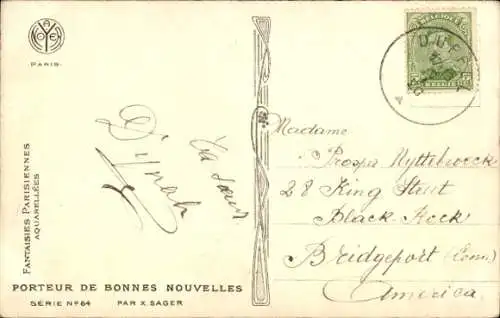 A
P
C
E
PARIS.
BELGIQUE
BELGIË
DUFF
FANTAISIES PARISIENNES
AQUARELLÉES
Ta sœur
Madame
Prosper Nyttebroeck
28 King Street
Black-Rock
Bridgeport (Conn.)
America.
PORTEUR DE BONNES NOUVELLES
SÉRIE Nº 64 PAR X. SAGER